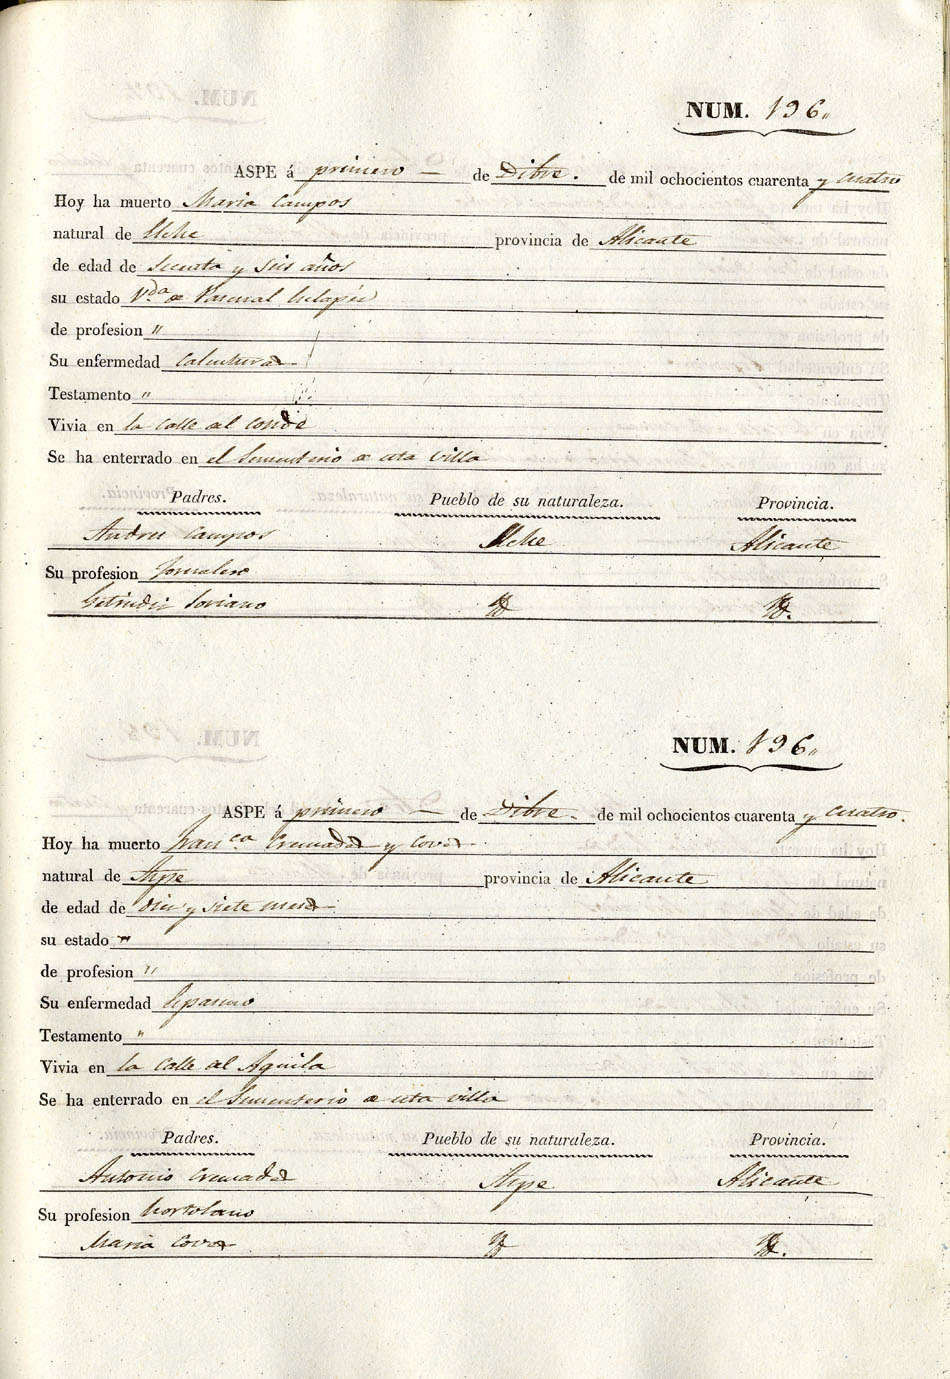 NUM. 196.
ASPE á primero — de Dibre. de mil ochocientos cuarenta y cuatro
Hoy ha muerto Maria Campos
natural de Elche provincia de Alicante
de edad de secenta y seis años
su estado V.da de Pascual
de profesion "
Su enfermedad calenturas
Testamento "
Vivia en la calle del Conde
Se ha enterrado en el Sementerio de esta villa
Padres. Pueblo de su naturaleza. Provincia.
Andres Campos Elche Alicante
Su profesion Jornalero
Getrudis Soriano Yd Yd.
NUM. 196.
ASPE á primero — de Dibre. de mil ochocientos cuarenta y cuatro.
Hoy ha muerto Fran.ca Cremades y Coves
natural de Aspe provincia de Alicante
de edad de dies y siete meses
su estado "
de profesion "
Su enfermedad Espasmo
Testamento "
Vivia en la calle del Aguila
Se ha enterrado en el Sementerio de esta villa
Padres. Pueblo de su naturaleza. Provincia.
Antonio Cremades Aspe Alicante
Su profesion hortolano
Maria Coves Yd Yd.